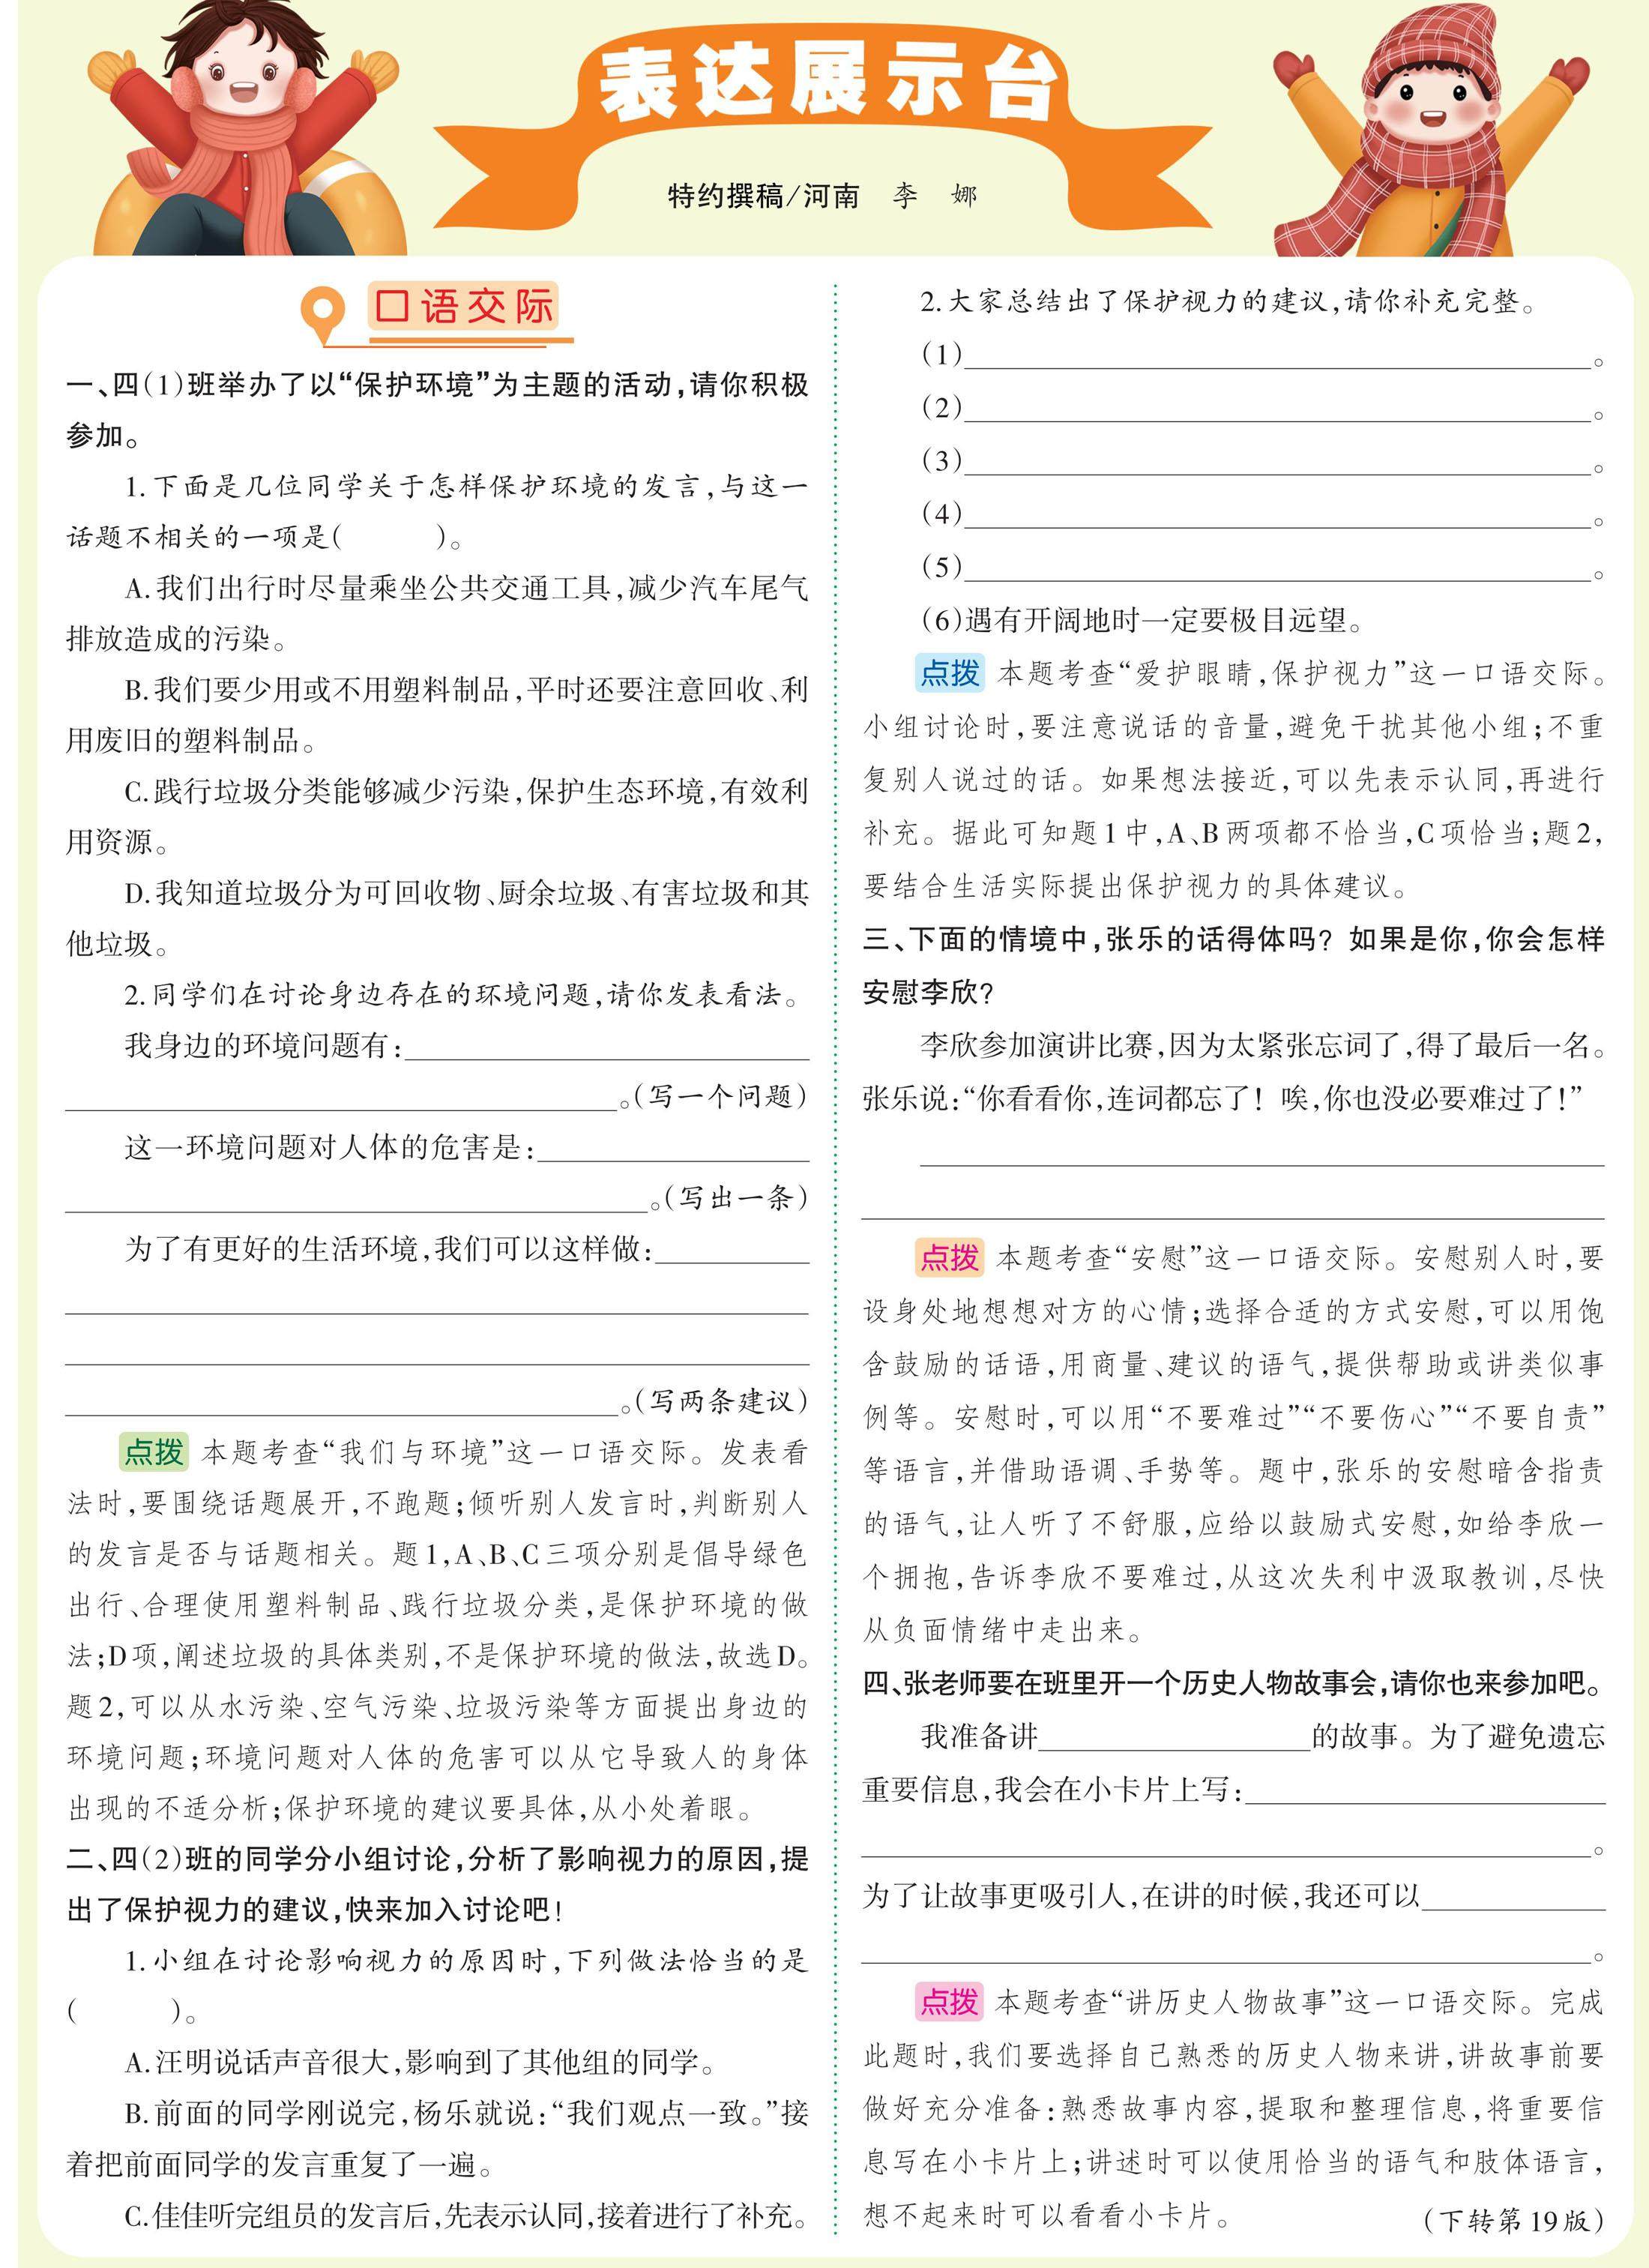 表达展示台
特约撰稿/河南　李　娜
口语交际
一、四(1)班举办了以“保护环境”为主题的活动,请你积极
参加。
1.下面是几位同学关于怎样保护环境的发言,与这一
话题不相关的一项是(　　　)。
A.我们出行时尽量乘坐公共交通工具,减少汽车尾气
排放造成的污染。
B.我们要少用或不用塑料制品,平时还要注意回收、利
用废旧的塑料制品。
C.践行垃圾分类能够减少污染,保护生态环境,有效利
用资源。
D.我知道垃圾分为可回收物、厨余垃圾、有害垃圾和其
他垃圾。
2.同学们在讨论身边存在的环境问题,请你发表看法。
我身边的环境问题有:
。(写一个问题)
这一环境问题对人体的危害是:
。(写出一条)
为了有更好的生活环境,我们可以这样做:
。(写两条建议)
点拨 本题考查“我们与环境”这一口语交际。发表看
法时,要围绕话题展开,不跑题;倾听别人发言时,判断别人
的发言是否与话题相关。题1,A、B、C三项分别是倡导绿色
出行、合理使用塑料制品、践行垃圾分类,是保护环境的做
法;D项,阐述垃圾的具体类别,不是保护环境的做法,故选D。
题2,可以从水污染、空气污染、垃圾污染等方面提出身边的
环境问题;环境问题对人体的危害可以从它导致人的身体
出现的不适分析;保护环境的建议要具体,从小处着眼。
二、四(2)班的同学分小组讨论,分析了影响视力的原因,提
出了保护视力的建议,快来加入讨论吧!
1.小组在讨论影响视力的原因时,下列做法恰当的是
(　　　)。
A.汪明说话声音很大,影响到了其他组的同学。
B.前面的同学刚说完,杨乐就说:“我们观点一致。”接
着把前面同学的发言重复了一遍。
C.佳佳听完组员的发言后,先表示认同,接着进行了补充。
2.大家总结出了保护视力的建议,请你补充完整。
(1)。
(2)。
(3)。
(4)。
(5)。
(6)遇有开阔地时一定要极目远望。
点拨 本题考查“爱护眼睛,保护视力”这一口语交际。
小组讨论时,要注意说话的音量,避免干扰其他小组;不重
复别人说过的话。如果想法接近,可以先表示认同,再进行
补充。据此可知题1中,A、B两项都不恰当,C项恰当;题2,
要结合生活实际提出保护视力的具体建议。
三、下面的情境中,张乐的话得体吗? 如果是你,你会怎样
安慰李欣?
李欣参加演讲比赛,因为太紧张忘词了,得了最后一名。
张乐说:“你看看你,连词都忘了! 唉,你也没必要难过了!”
点拨 本题考查“安慰”这一口语交际。安慰别人时,要
设身处地想想对方的心情;选择合适的方式安慰,可以用饱
含鼓励的话语,用商量、建议的语气,提供帮助或讲类似事
例等。安慰时,可以用“不要难过”“不要伤心”“不要自责”
等语言,并借助语调、手势等。题中,张乐的安慰暗含指责
的语气,让人听了不舒服,应给以鼓励式安慰,如给李欣一
个拥抱,告诉李欣不要难过,从这次失利中汲取教训,尽快
从负面情绪中走出来。
四、张老师要在班里开一个历史人物故事会,请你也来参加吧。
我准备讲　　　　　　的故事。为了避免遗忘
重要信息,我会在小卡片上写:
。
为了让故事更吸引人,在讲的时候,我还可以
。
点拨 本题考查“讲历史人物故事”这一口语交际。完成
此题时,我们要选择自己熟悉的历史人物来讲,讲故事前要
做好充分准备:熟悉故事内容,提取和整理信息,将重要信
息写在小卡片上;讲述时可以使用恰当的语气和肢体语言,
想不起来时可以看看小卡片。
(下转第19版)